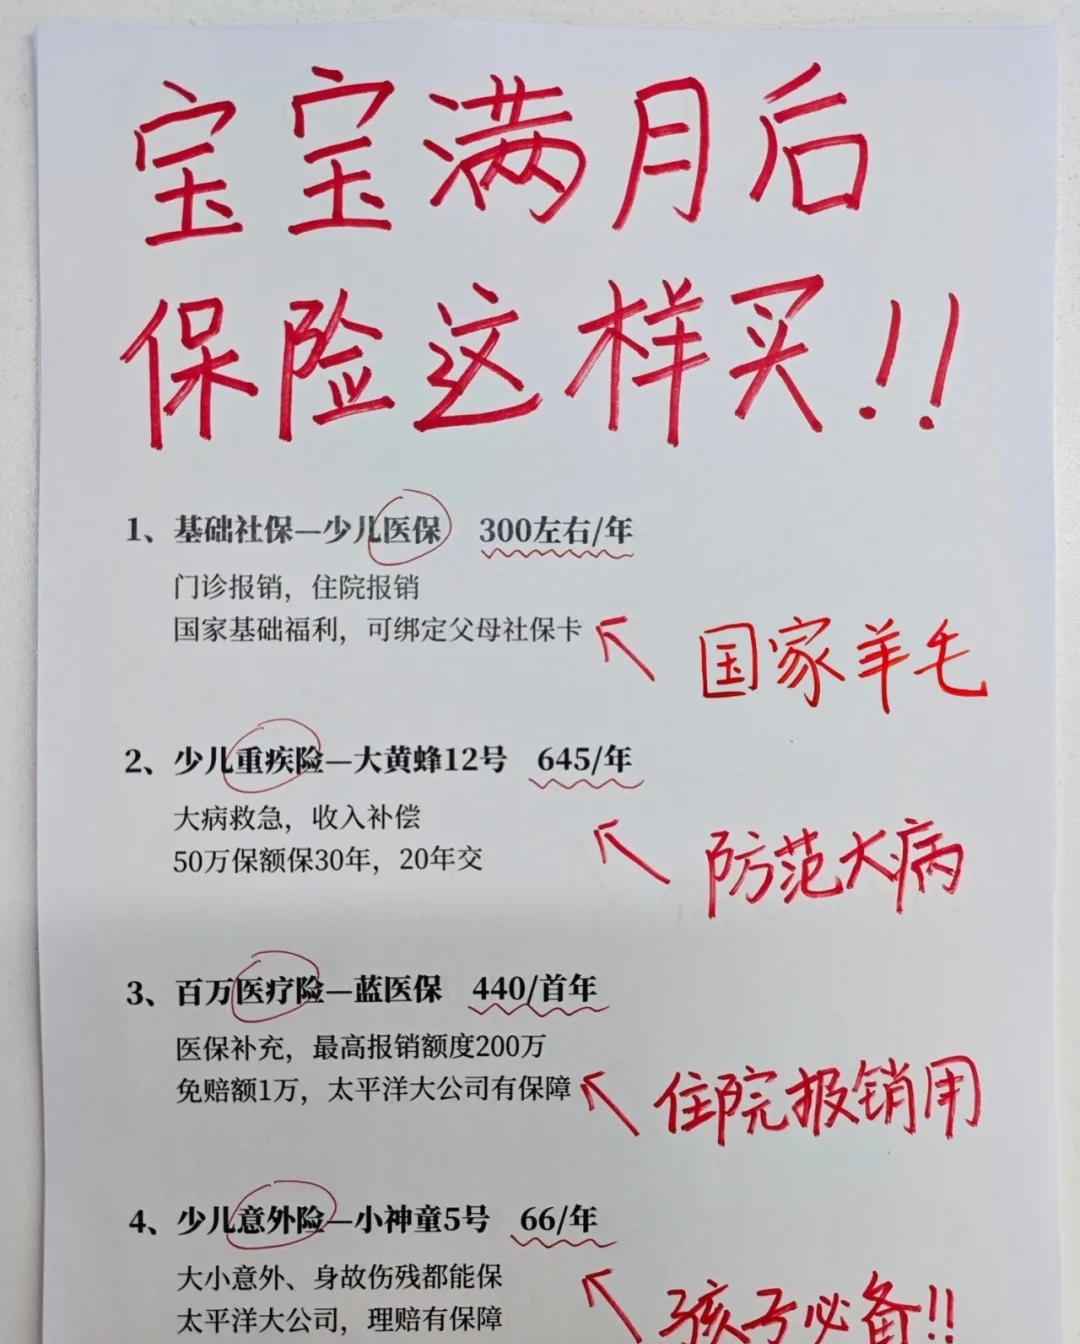 宝宝满月后
保险这样买!!
1、基础社保—少儿医保 300左右/年
门诊报销，住院报销
国家基础福利，可绑定父母社保卡
国家羊毛
2、少儿重疾险—大黄蜂12号 645/年
大病救急，收入补偿
50万保额保30年，20年交
防范大病
3、百万医疗险—蓝医保 440/首年
医保补充，最高报销额度200万
免赔额1万，太平洋大公司有保障
住院报销用
4、少儿意外险—小神童5号 66/年
大小意外、身故伤残都能保
太平洋大公司，理赔有保障
孩子必备!!